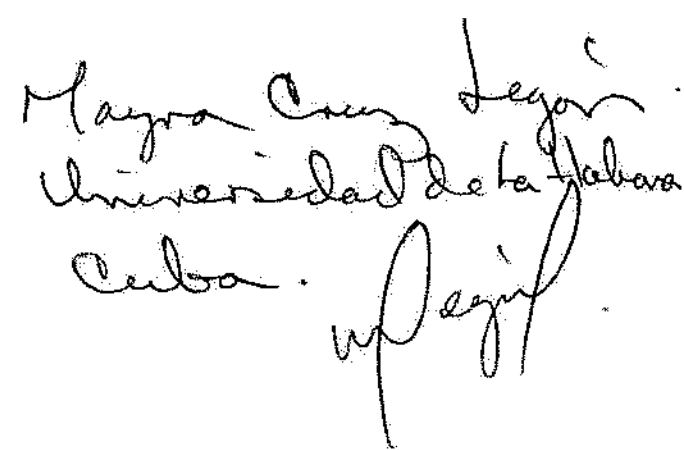 Mayra Cruz Legón
Universidad de La Habana
Cuba.